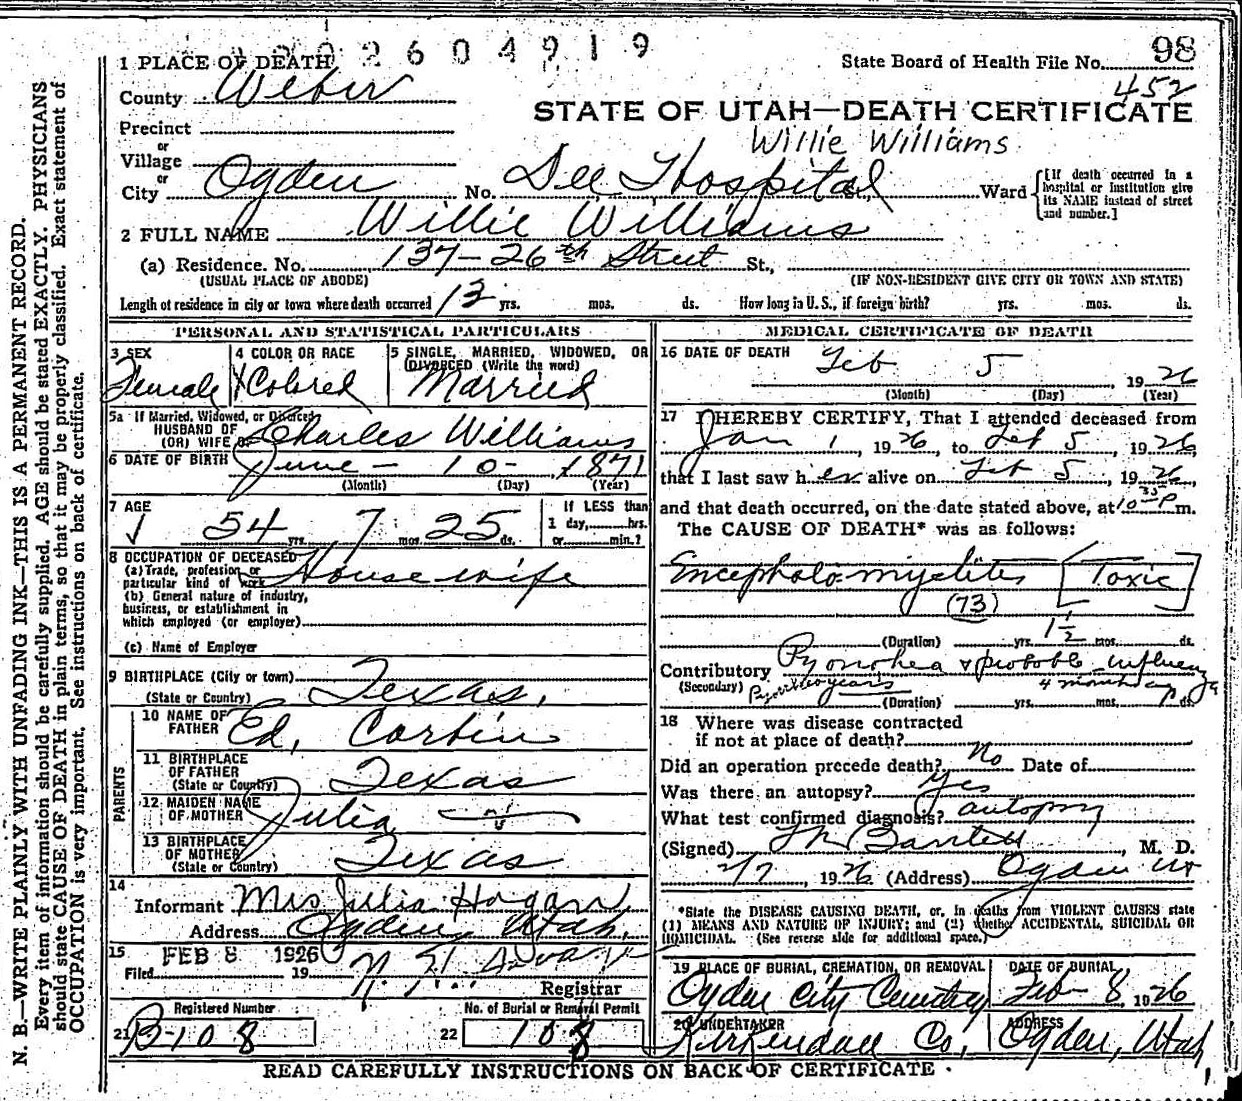 2604919
1 PLACE OF DEATH
State Board of Health File No. 98
County Weber
452
STATE OF UTAH—DEATH CERTIFICATE
Precinct
Willie Williams
or
Village
or
City Ogden No. Dee Hospital St., Ward
[If death occurred in a
hospital or institution give
its NAME instead of street
and number.]
2 FULL NAME Willie Williams
(a) Residence. No. 137-26th Street St.,
(USUAL PLACE OF ABODE) (IF NON-RESIDENT GIVE CITY OR TOWN AND STATE)
Length of residence in city or town where death occurred 12 yrs. mos. ds. How long in U. S., if foreign birth? yrs. mos. ds.
PERSONAL AND STATISTICAL PARTICULARS
3 SEX 4 COLOR OR RACE 5 SINGLE, MARRIED, WIDOWED, OR
DIVORCED (Write the word)
Female Colored Married
5a If Married, Widowed, or Divorced
HUSBAND OF
(OR) WIFE OF Charles Williams
6 DATE OF BIRTH June - 10 - 1871
(Month) (Day) (Year)
7 AGE If LESS than
54 yrs. 7 mos. 25 ds. 1 day, hrs.
or min.?
8 OCCUPATION OF DECEASED
(a) Trade, profession, or
particular kind of work House wife
(b) General nature of industry,
business, or establishment in
which employed (or employer)
(c) Name of Employer
9 BIRTHPLACE (City or town)
(State or Country) Texas.
PARENTS
10 NAME OF
FATHER Ed, Corbin
11 BIRTHPLACE
OF FATHER
(State or Country) Texas
12 MAIDEN NAME
OF MOTHER Julia — ? —
13 BIRTHPLACE
OF MOTHER
(State or Country) Texas
14
Informant Mrs Julia Hogan
Address Ogden, Utah.
15 FEB 8 1926
Filed 19
Registrar
Registered Number No. of Burial or Removal Permit
21 B-108 22 108
MEDICAL CERTIFICATE OF DEATH
16 DATE OF DEATH Feb 5, 1926
(Month) (Day) (Year)
17 I HEREBY CERTIFY, That I attended deceased from
Jan 1, 1926, to Feb 5, 1926,
that I last saw her alive on Feb 5, 1926,
and that death occurred, on the date stated above, at 10 35 P m.
The CAUSE OF DEATH* was as follows:
Encephalo-myelites [Toxic]
(73)
(Duration) yrs. 1½ mos. ds.
Contributory Pyorrhea & probable influenza
(Secondary) years 4 months ago
(Duration) yrs. mos. ds.
18 Where was disease contracted
if not at place of death?
Did an operation precede death? No Date of
Was there an autopsy? Yes
What test confirmed diagnosis? autopsy
(Signed) Bartlett, M. D.
2/7, 1926 (Address) Ogden Ut
*State the DISEASE CAUSING DEATH, or, in deaths from VIOLENT CAUSES state
(1) MEANS AND NATURE OF INJURY; and (2) whether ACCIDENTAL, SUICIDAL OR
HOMICIDAL. (See reverse side for additional space.)
19 PLACE OF BURIAL, CREMATION, OR REMOVAL DATE OF BURIAL
Ogden City Cemetery Feb - 8, 1926
20 UNDERTAKER ADDRESS
Kirkendall Co, Ogden, Utah
READ CAREFULLY INSTRUCTIONS ON BACK OF CERTIFICATE
N. B.—WRITE PLAINLY WITH UNFADING INK—THIS IS A PERMANENT RECORD.
Every item of information should be carefully supplied. AGE should be stated EXACTLY. PHYSICIANS
should state CAUSE OF DEATH in plain terms, so that it may be properly classified. Exact statement of
OCCUPATION is very important. See instructions on back of certificate.